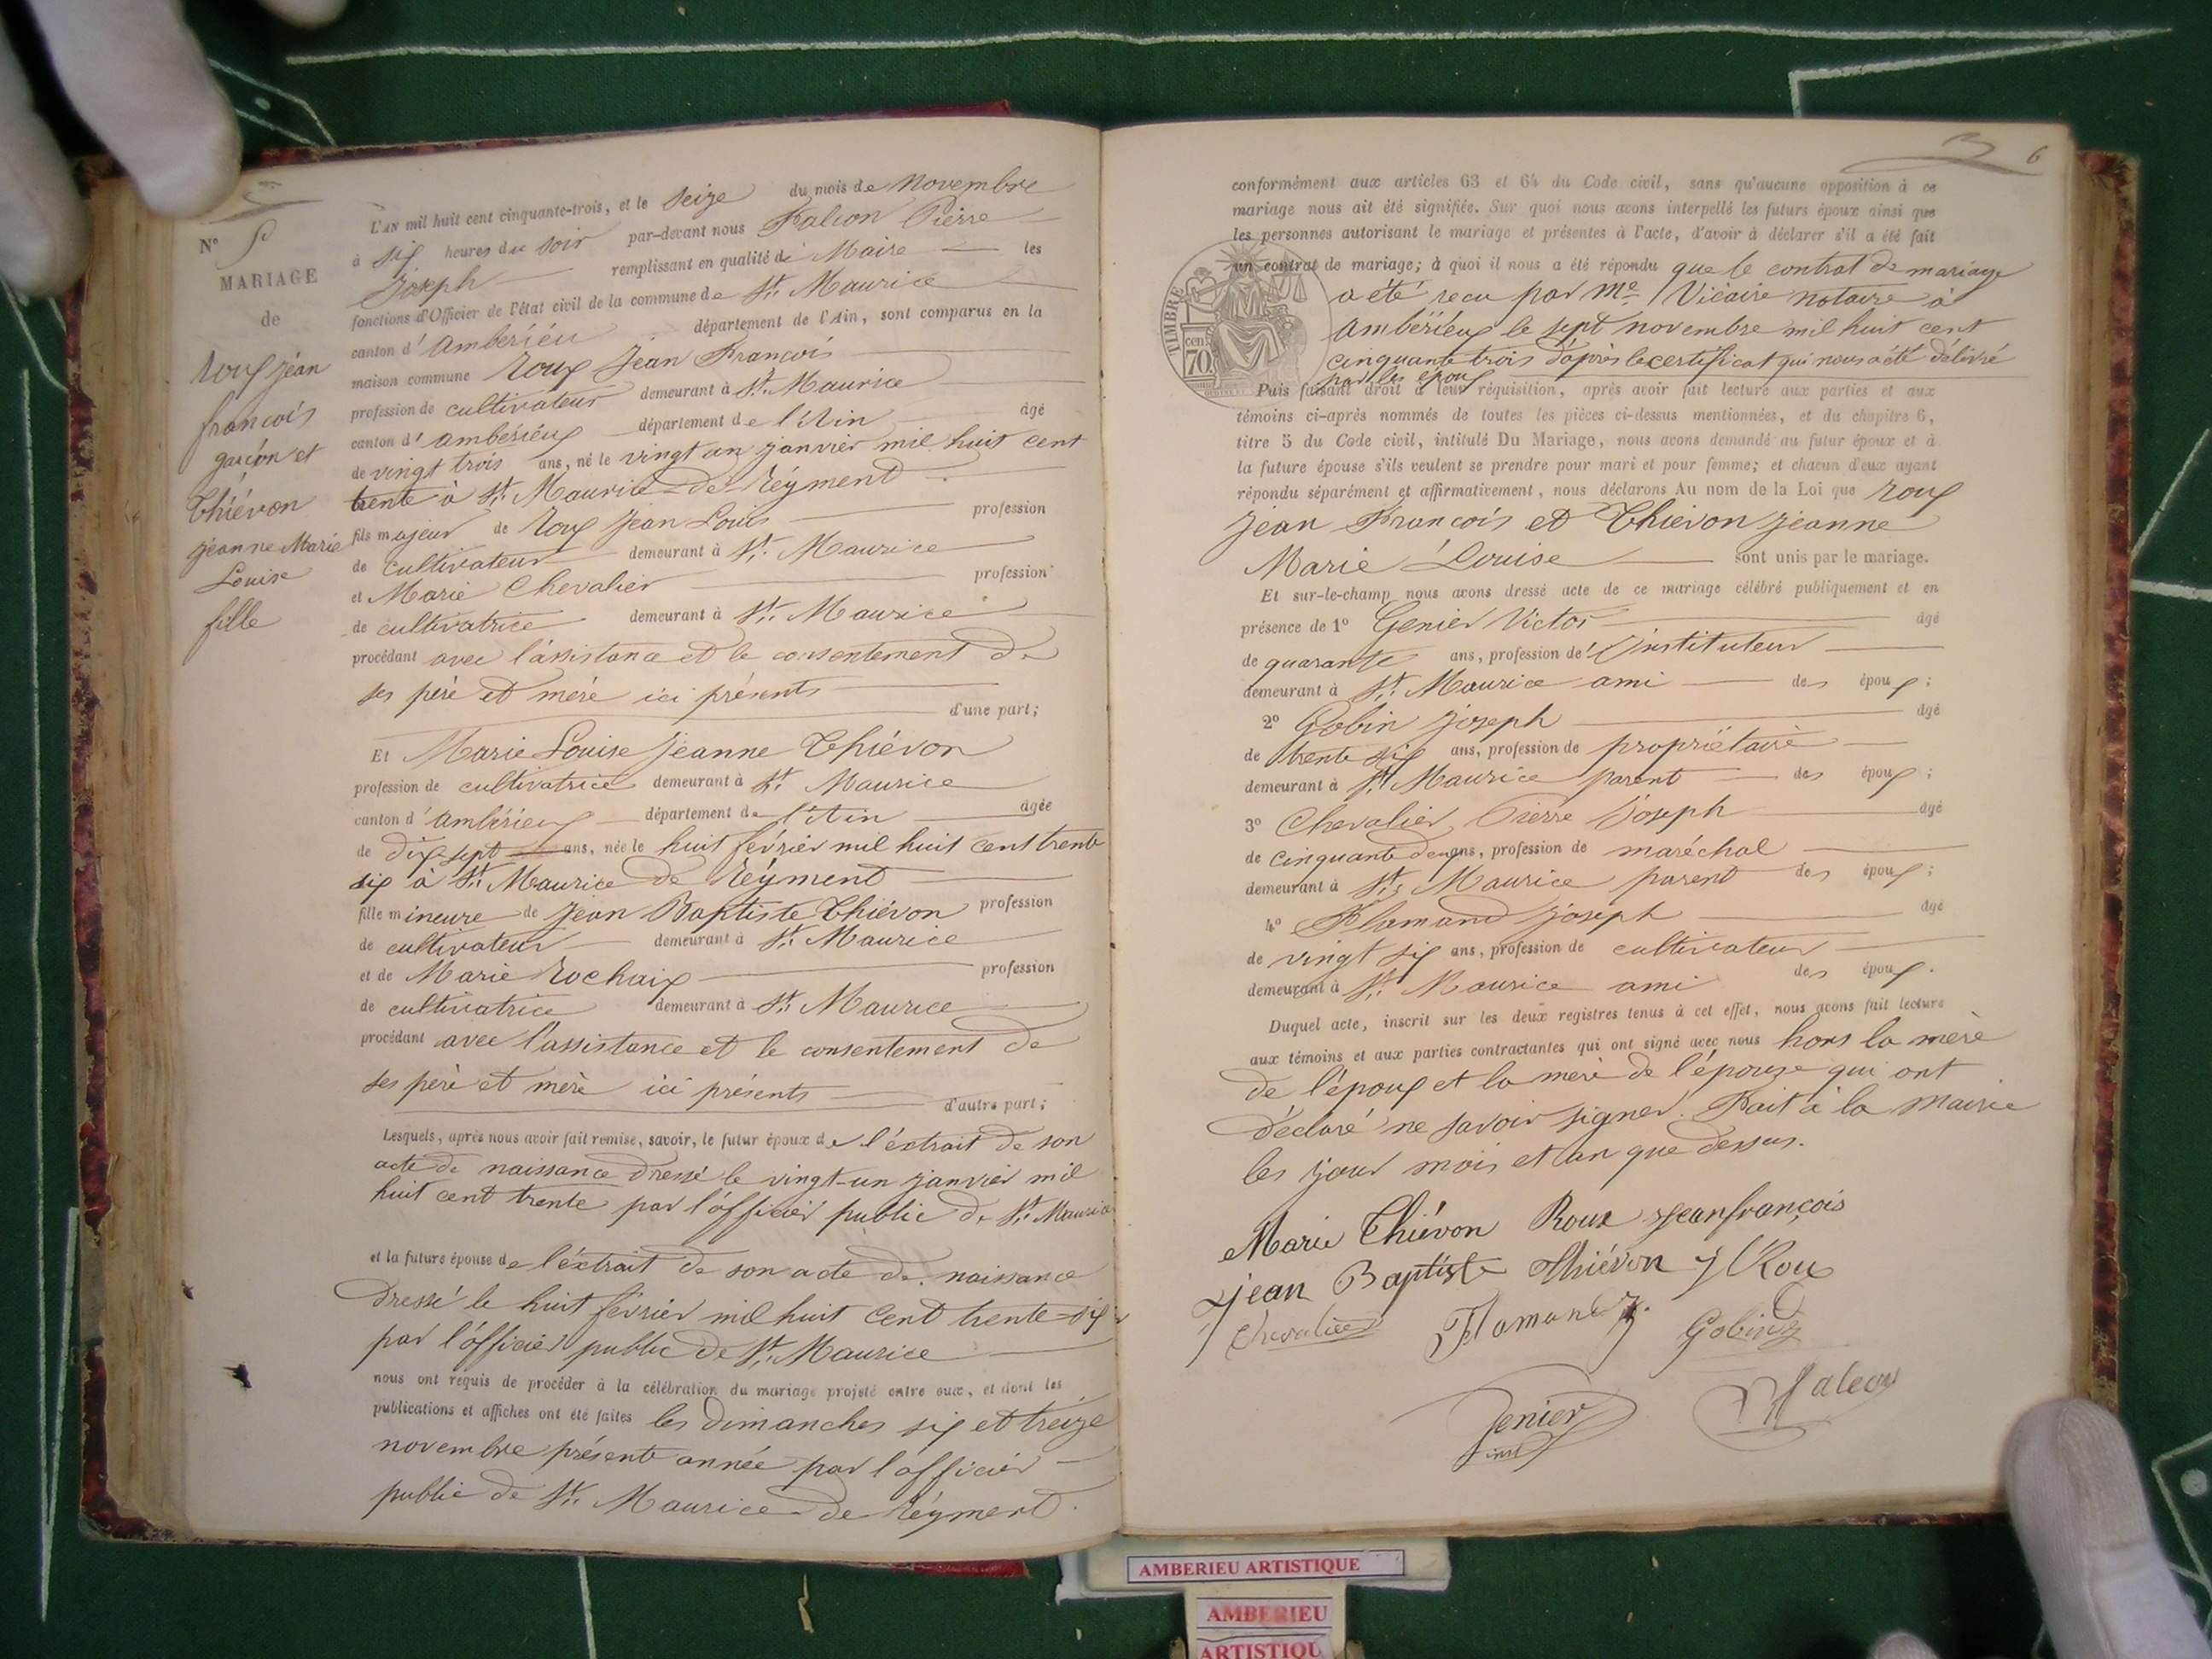 N° 5
MARIAGE
de
roux jean
francois
garcon et
Thiévon
jeanne Marie
Louise
fille
L'AN mil huit cent cinquante-trois, et le seize du mois de novembre
à six heures du soir par-devant nous Falcon Pierre
Joseph remplissant en qualité de Maire les
fonctions d'Officier de l'état civil de la commune de St. Maurice
canton d'ambérieu département de l'Ain, sont comparus en la
maison commune roux jean Francois
profession de cultivateur demeurant à St. Maurice
canton d'ambérieux département de l'Ain âgé
de vingt trois ans, né le vingt un janvier mil huit cent
trente à St. Maurice de Réyment
fils majeur de roux jean Louis profession
de cultivateur demeurant à St. Maurice
et Marie Chevalier profession
de cultivatrice demeurant à St. Maurice
procédant avec l'assistance et le consentement de
ses père et mère ici présents
d'une part;
Et Marie Louise jeanne Thiévon
profession de cultivatrice demeurant à St. Maurice
canton d'ambérieux département de l'Ain âgée
de dix sept ans, née le huit février mil huit cent trente
six à St. Maurice de Réyment
fille mineure de jean Baptiste Thiévon profession
de cultivateur demeurant à St. Maurice
et de Marie Rochaix profession
de cultivatrice demeurant à St. Maurice
procédant avec l'assistance et le consentement de
ses père et mère ici présents
d'autre part;
Lesquels, après nous avoir fait remise, savoir, le futur époux de l'extrait de son
acte de naissance dressé le vingt-un janvier mil
huit cent trente par l'officier public de St. Maurice
et la future épouse de l'extrait de son acte de naissance
dressé le huit février mil huit cent trente-six
par l'officier public de St. Maurice
nous ont requis de procéder à la célébration du mariage projeté entre eux, et dont les
publications et affiches ont été faites les dimanches six et treize
novembre présente année par l'officier
public de St. Maurice de Réyment.
6
conformément aux articles 63 et 64 du Code civil, sans qu'aucune opposition à ce
mariage nous ait été signifiée. Sur quoi nous avons interpellé les futurs époux ainsi que
les personnes autorisant le mariage et présentes à l'acte, d'avoir à déclarer s'il a été fait
un contrat de mariage; à quoi il nous a été répondu que le contrat de mariage
a été recu par Me. Vicaire notaire à
ambérieux le sept novembre mil huit cent
cinquante trois d'après le certificat qui nous a été délivré
par les époux
TIMBRE
cen
70
Puis faisant droit à leur réquisition, après avoir fait lecture aux parties et aux
témoins ci-après nommés de toutes les pièces ci-dessus mentionnées, et du chapitre 6,
titre 5 du Code civil, intitulé Du Mariage, nous avons demandé au futur époux et à
la future épouse s'ils veulent se prendre pour mari et pour femme; et chacun d'eux ayant
répondu séparément et affirmativement, nous déclarons Au nom de la Loi que roux
jean Francois et Thievon jeanne
Marie Louise sont unis par le mariage.
Et sur-le-champ nous avons dressé acte de ce mariage célébré publiquement et en
présence de 1° Genier Victor âgé
de quarante ans, profession de instituteur
demeurant à St. Maurice ami des époux;
2° Gobin joseph âgé
de trente six ans, profession de propriétaire
demeurant à St. Maurice parent des époux;
3° Chevalier Pierre Joseph âgé
de cinquante deux ans, profession de maréchal
demeurant à St. Maurice parent des époux;
4° Flamand joseph âgé
de vingt six ans, profession de cultivateur
demeurant à St. Maurice ami des époux.
Duquel acte, inscrit sur les deux registres tenus à cet effet, nous avons fait lecture
aux témoins et aux parties contractantes qui ont signé avec nous hors la mère
de l'époux et la mère de l'épouse qui ont
déclaré ne savoir signer. Fait à la mairie
les jour mois et an que dessus.
Marie Thiévon Roux jeanfrançois
jean Baptiste thiévon j l Roux
Chevalier Flamand j. Gobin
Genier Falcon
inst
AMBERIEU ARTISTIQUE
AMBERIEU
ARTISTIQU